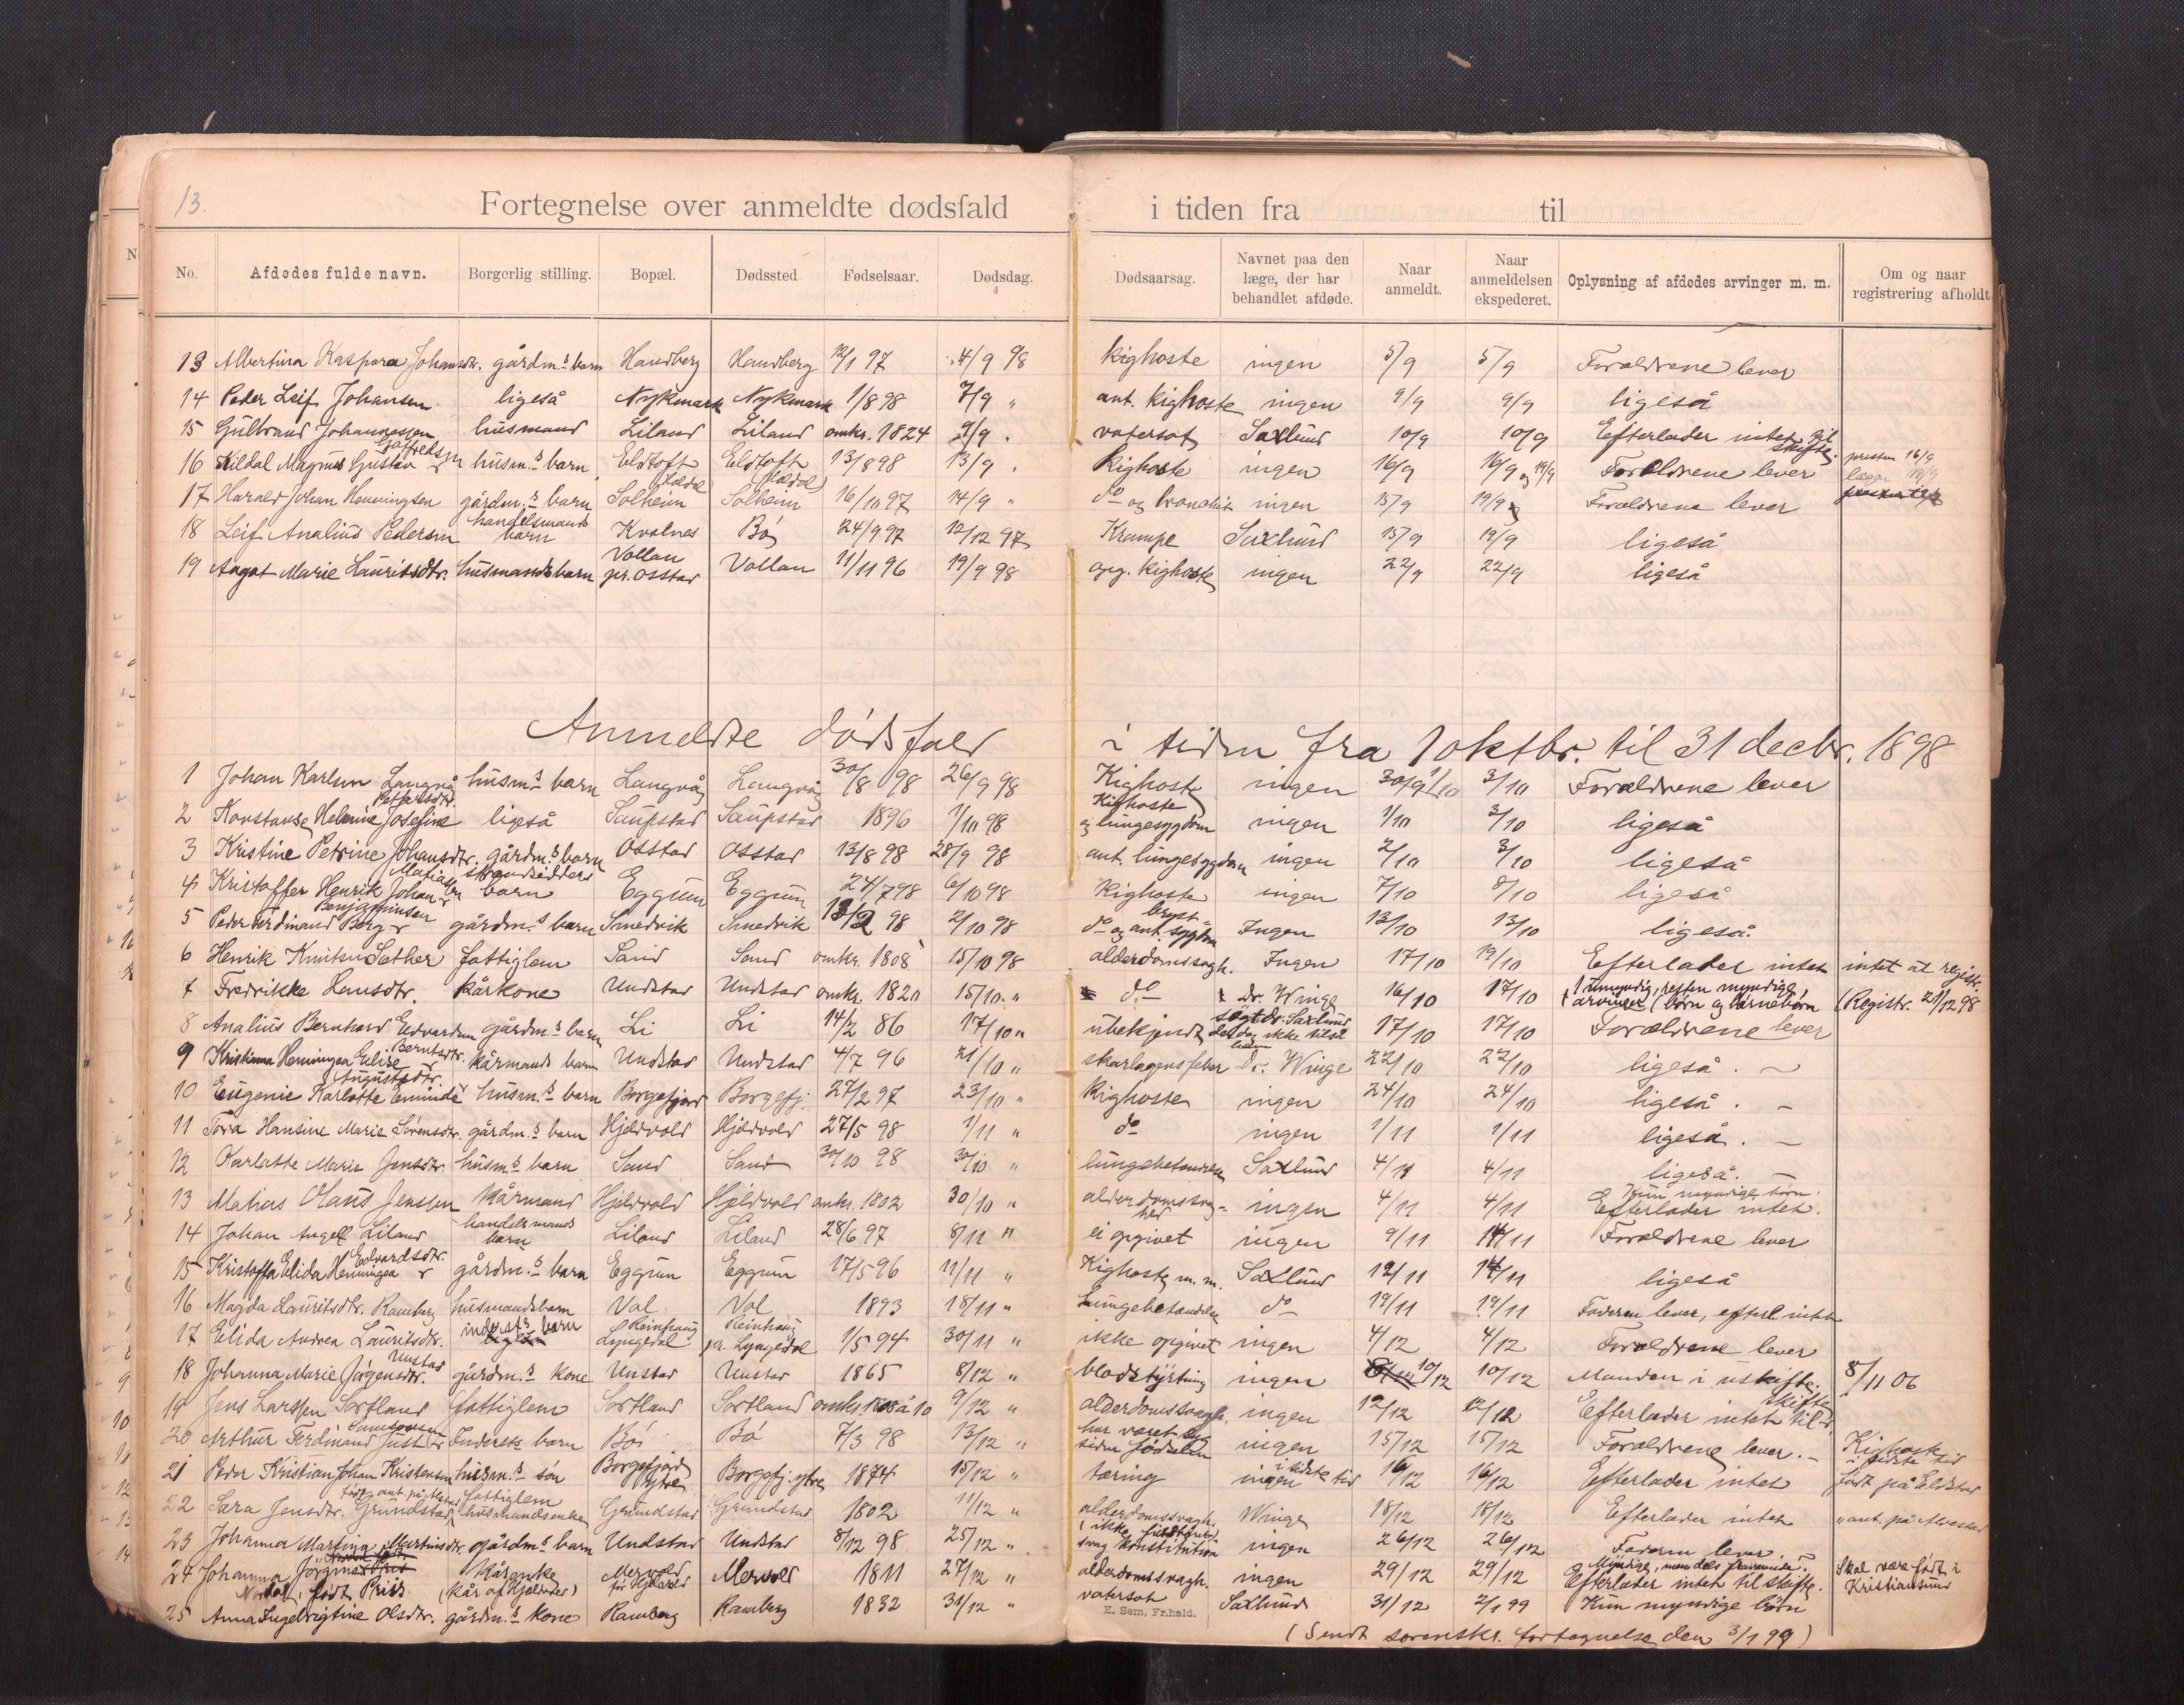 13.
Fortegnelse over anmeldte dødsfald i tiden fra til
No. Afdødes fulde navn. Borgerlig stilling. Bopæl. Dødssted Fødselsaar. Dødsdag. Dødsaarsag. Navnet paa den læge, der har behandlet afdøde. Naar anmeldt. Naar anmeldelsen ekspederet. Oplysning af afdødes arvinger m. m. Om og naar registrering afholdt
13 Albertina Kaspara Johansdtr. gårdm.s barn Handberg Handberg 12/1 97 4/9 98 Kighoste ingen 5/9 5/9 Forældrene lever
14 Peder Leif Johansen ligeså Nykmark Nykmark 1/8 98 7/9 " ant. kighoste ingen 9/9 9/9 ligeså
15 Gulbrand Johannessen husmand Liland Liland omkr. 1824 9/9 " vatersot Saxlund 10/9 10/9 Efterlader intet til skifte.
16 Kildal Magnus Gustav Gotfredsen husm.s barn Eldtoft Eldtoft 13/8 98 13/9 " Kighoste ingen 16/9 16/9 og 19/9 Forældrene lever presten 16/9
17 Harald Johan Henningsen gårdm.s barn Solheim Solheim 16/10 97 14/9 " do og bronchit ingen 15/9 19/9 Forældrene lever
18 Leif Analius Pedersen handelsmands barn Kvalnes Bø 24/9 97 12/12 97 Krampe Saxlund 15/9 19/9 ligeså
19 Aagot Marie Lauritsdtr. husmandsbarn Vollan pr. Osstad Vollan 11/11 96 19/9 98 opg. kighoste ingen 22/9 22/9 ligeså
Anmeldte dødsfald i tiden fra 1 oktbr. til 31 decbr. 1898
1 Johan Karlsen Langvå husm.s barn Langvåg Langvåg 30/8 98 26/9 98 Kighoste ingen 30/9 1/10 3/10 Forældrene lever
2 Konstanse Helmine Josefine Petersdtr. ligeså Saupstad Saupstad 1896 1/10 98 Kighoste og lungesygdom ingen 1/10 3/10 ligeså
3 Kristine Petrine Johansdtr. gårdm.s barn Osstad Osstad 13/8 98 28/9 98 ant. lungesygdom ingen 2/10 3/10 ligeså
4 Kristoffer Henrik Johan Matiassen strandsidders barn Eggum Eggum 24/7 98 6/10 98 Kighoste ingen 7/10 8/10 ligeså
5 Peder Ferdinand Berg Benjaminsen gårdm.s barn Smedvik Smedvik 13/2 98 2/10 98 do og ant. brystsygdom Ingen 13/10 13/10 ligeså.
6 Henrik Knutsen Sæther fattiglem Sand Sand omkr. 1808 15/10 98 alderdomssvagh. Ingen 17/10 19/10 Efterlader intet intet at registr.
7 Fredrikke Hansdtr. kårkone Undstad Undstad omkr. 1820 15/10 " do Dr. Winge 16/10 17/10 1 umyndig, resten myndige arvinger (børn og børnebørn (Registr. 21/12 98
8 Analius Bernhard Edvardsen gårdm.s barn Li Li 14/2 86 17/10 " ubekjendt søgt dr. Saxlund 17/10 17/10 Forældrene lever
9 Kristiana Henningea Elise Berntsdtr. kårmands barn Undstad Undstad 4/7 96 21/10 " skarlagensfeber Dr. Winge 22/10 22/10 ligeså.
10 Eugenie Karlotte Eminde Augustsdtr. husm.s barn Borgefjord Borgefj. 27/2 97 23/10 " Kighoste ingen 24/10 24/10 ligeså.
11 Tora Hansine Marie Sørensdtr. gårdm.s barn Hjeldvold Hjeldvold 27/5 98 1/11 " do ingen 1/11 1/11 ligeså.
12 Karlotte Marie Jensdtr. husm.s barn Sand Sand 30/10 98 30/10 " lungebetændelse Saxlund 4/11 4/11 ligeså.
13 Matias Olaus Jenssen kårmand Hjeldvold Hjeldvold omkr. 1802 30/10 " alderdomssvaghed ingen 4/11 4/11 Kun myndige børn. Efterlader intet.
14 Johan Angell Liland handelsmands barn Liland Liland 28/6 97 8/11 " ei opgivet ingen 9/11 14/11 Forældrene lever
15 Kristoffa Elida Henningea Edvardsdtr. gårdm.s barn Eggum Eggum 17/5 96 11/11 " Kighoste m. m. Saxlund 12/11 14/11 ligeså
16 Magda Lauritsdtr. Ramberg husmandsbarn Val Val 1893 18/11 " Lungebetændelse do 19/11 19/11 Faderen lever, efterl intet
17 Elida Andrea Lauritsdtr. inderst.s barn Reinhaug Lyngedal Reinhaug pr. Lyngedal 1/5 94 30/11 " ikke opgivet ingen 4/12 4/12 Forældrene lever
18 Johanna Marie Jørgensdtr. Unstad gårdm.s kone Unstad Unstad 1865 8/12 " blodstyrtning ingen 10/12 10/12 Manden i uskifte. 8/11 06
19 Jens Larssen Sortland fattiglem Sortland Sortland omkr. 9/12 " alderdomssvagh. ingen 12/12 12/12 Efterlader intet til skifte
20 Arthur Ferdinand Just Samuelsen Inderst.s barn Bø Bø 7/3 98 13/12 " har været syg siden fødselen ingen 15/12 15/12 Forældrene lever. Kighoste i sidste tid
21 Peder Kristian Johan Kristensen husm.s søn Borgefjord ytre Borgefj. ytre 1874 15/12 " tæring ingen i sidste tid 16/12 16/12 Efterlader intet født på Eldstad
22 Sara Jensdtr. Grundstad fattiglem husmandsenke Grundstad Grundstad 1802 11/12 " alderdomssvagh. Winge 18/12 18/12 Efterlader intet " ant. på Alvestad
23 Johanna Martina Martinsdtr. gårdm.s barn Undstad Undstad 8/12 98 25/12 " svag konstitution ingen 26/12 26/12 Faderen lever
24 Johanna Jörgine Nordal, født Priis Kårenke (kår af Hjeldvold) Mervold før Hjeldvold Mervold 1811 27/12 " alderdomssvagh. ingen 29/12 29/12 Myndige, men dels fraværende. Efterlader intet til skifte. Skal være født i Kristiansund
25 Anna Ingebrigtine Olsdtr. gårdm.s kone Ramberg Ramberg 1832 31/12 " vatersot Saxlund 31/12 2/1 99 Kun myndige børn
E. Sem, Fr.hald.
(Sendt sorenskr. fortegnelse den 3/1 99)